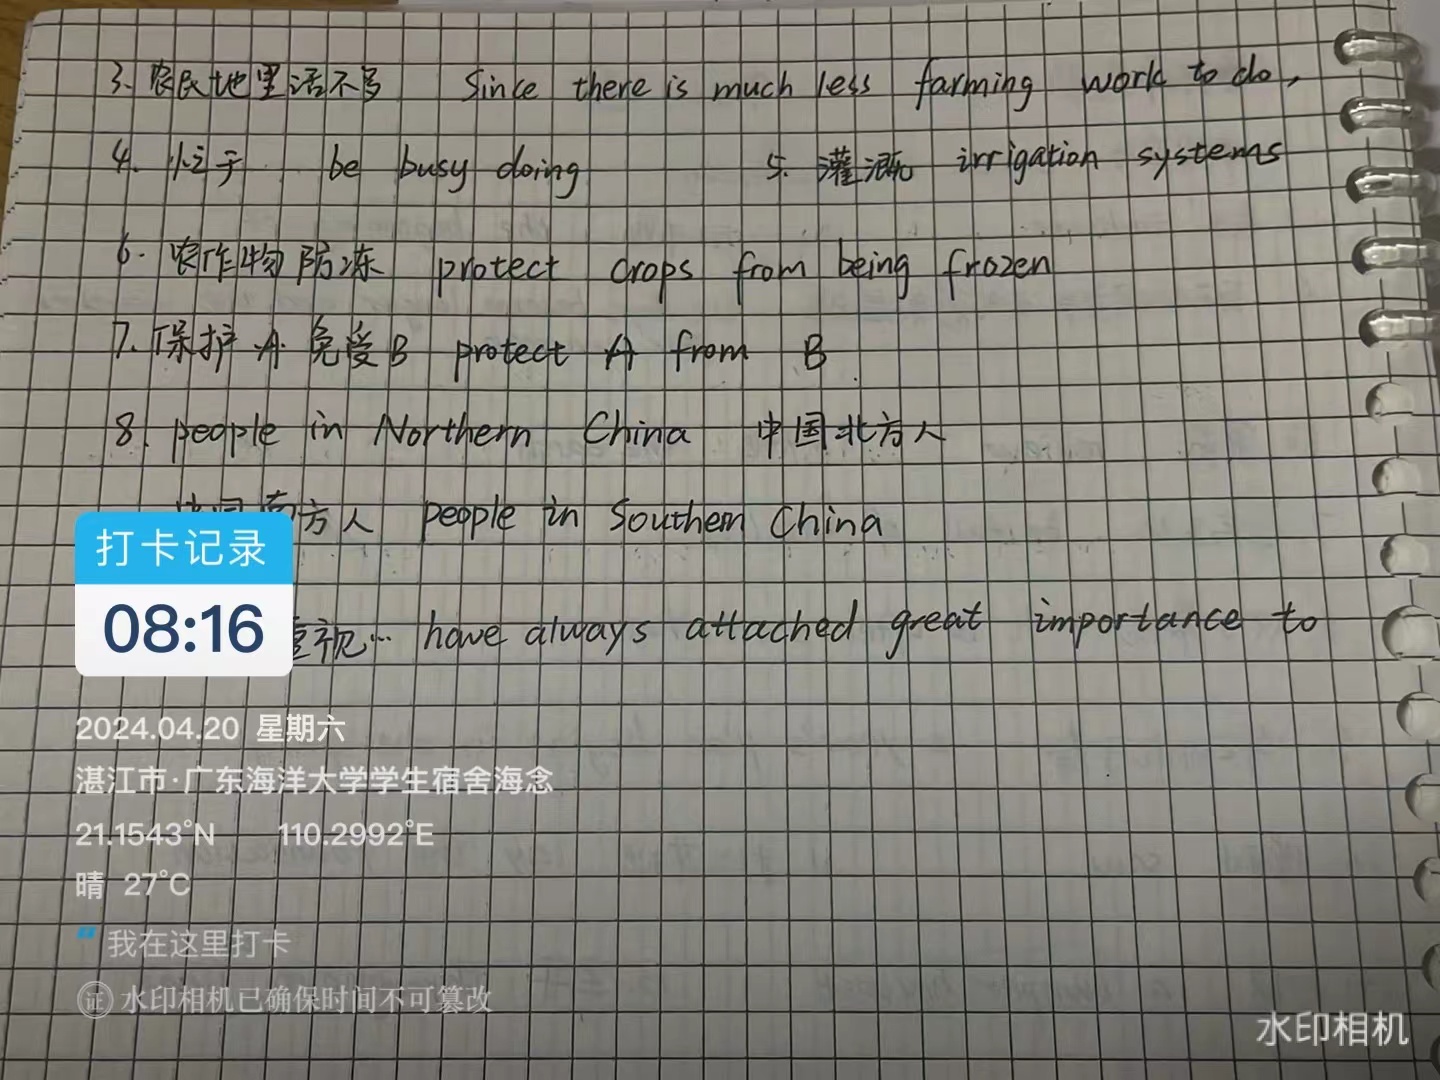 3. 农民地里活不多 Since there is much less farming work to do,
4. 忙于 be busy doing 5. 灌溉 irrigation systems
6. 农作物防冻 protect crops from being frozen
7. 保护A免受B protect A from B
8. people in Northern China 中国北方人
南方人 people in Southern China
重视… have always attached great importance to
打卡记录
08:16
2024.04.20 星期六
湛江市·广东海洋大学学生宿舍海念
21.1543°N 110.2992°E
晴 27°C
“我在这里打卡
证 水印相机已确保时间不可篡改
水印相机